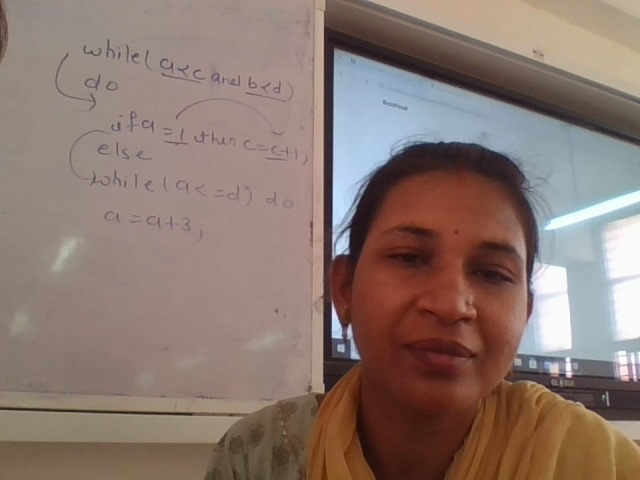 while(a<c and b<d)
do
if a=1 then c=c+1;
else
while(a<=d) do
a=a+3;